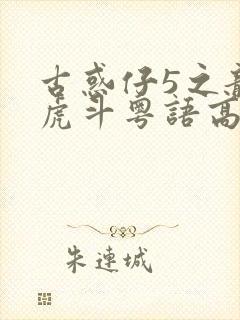 古惑仔5之龍
虎斗粵語高
朱連城